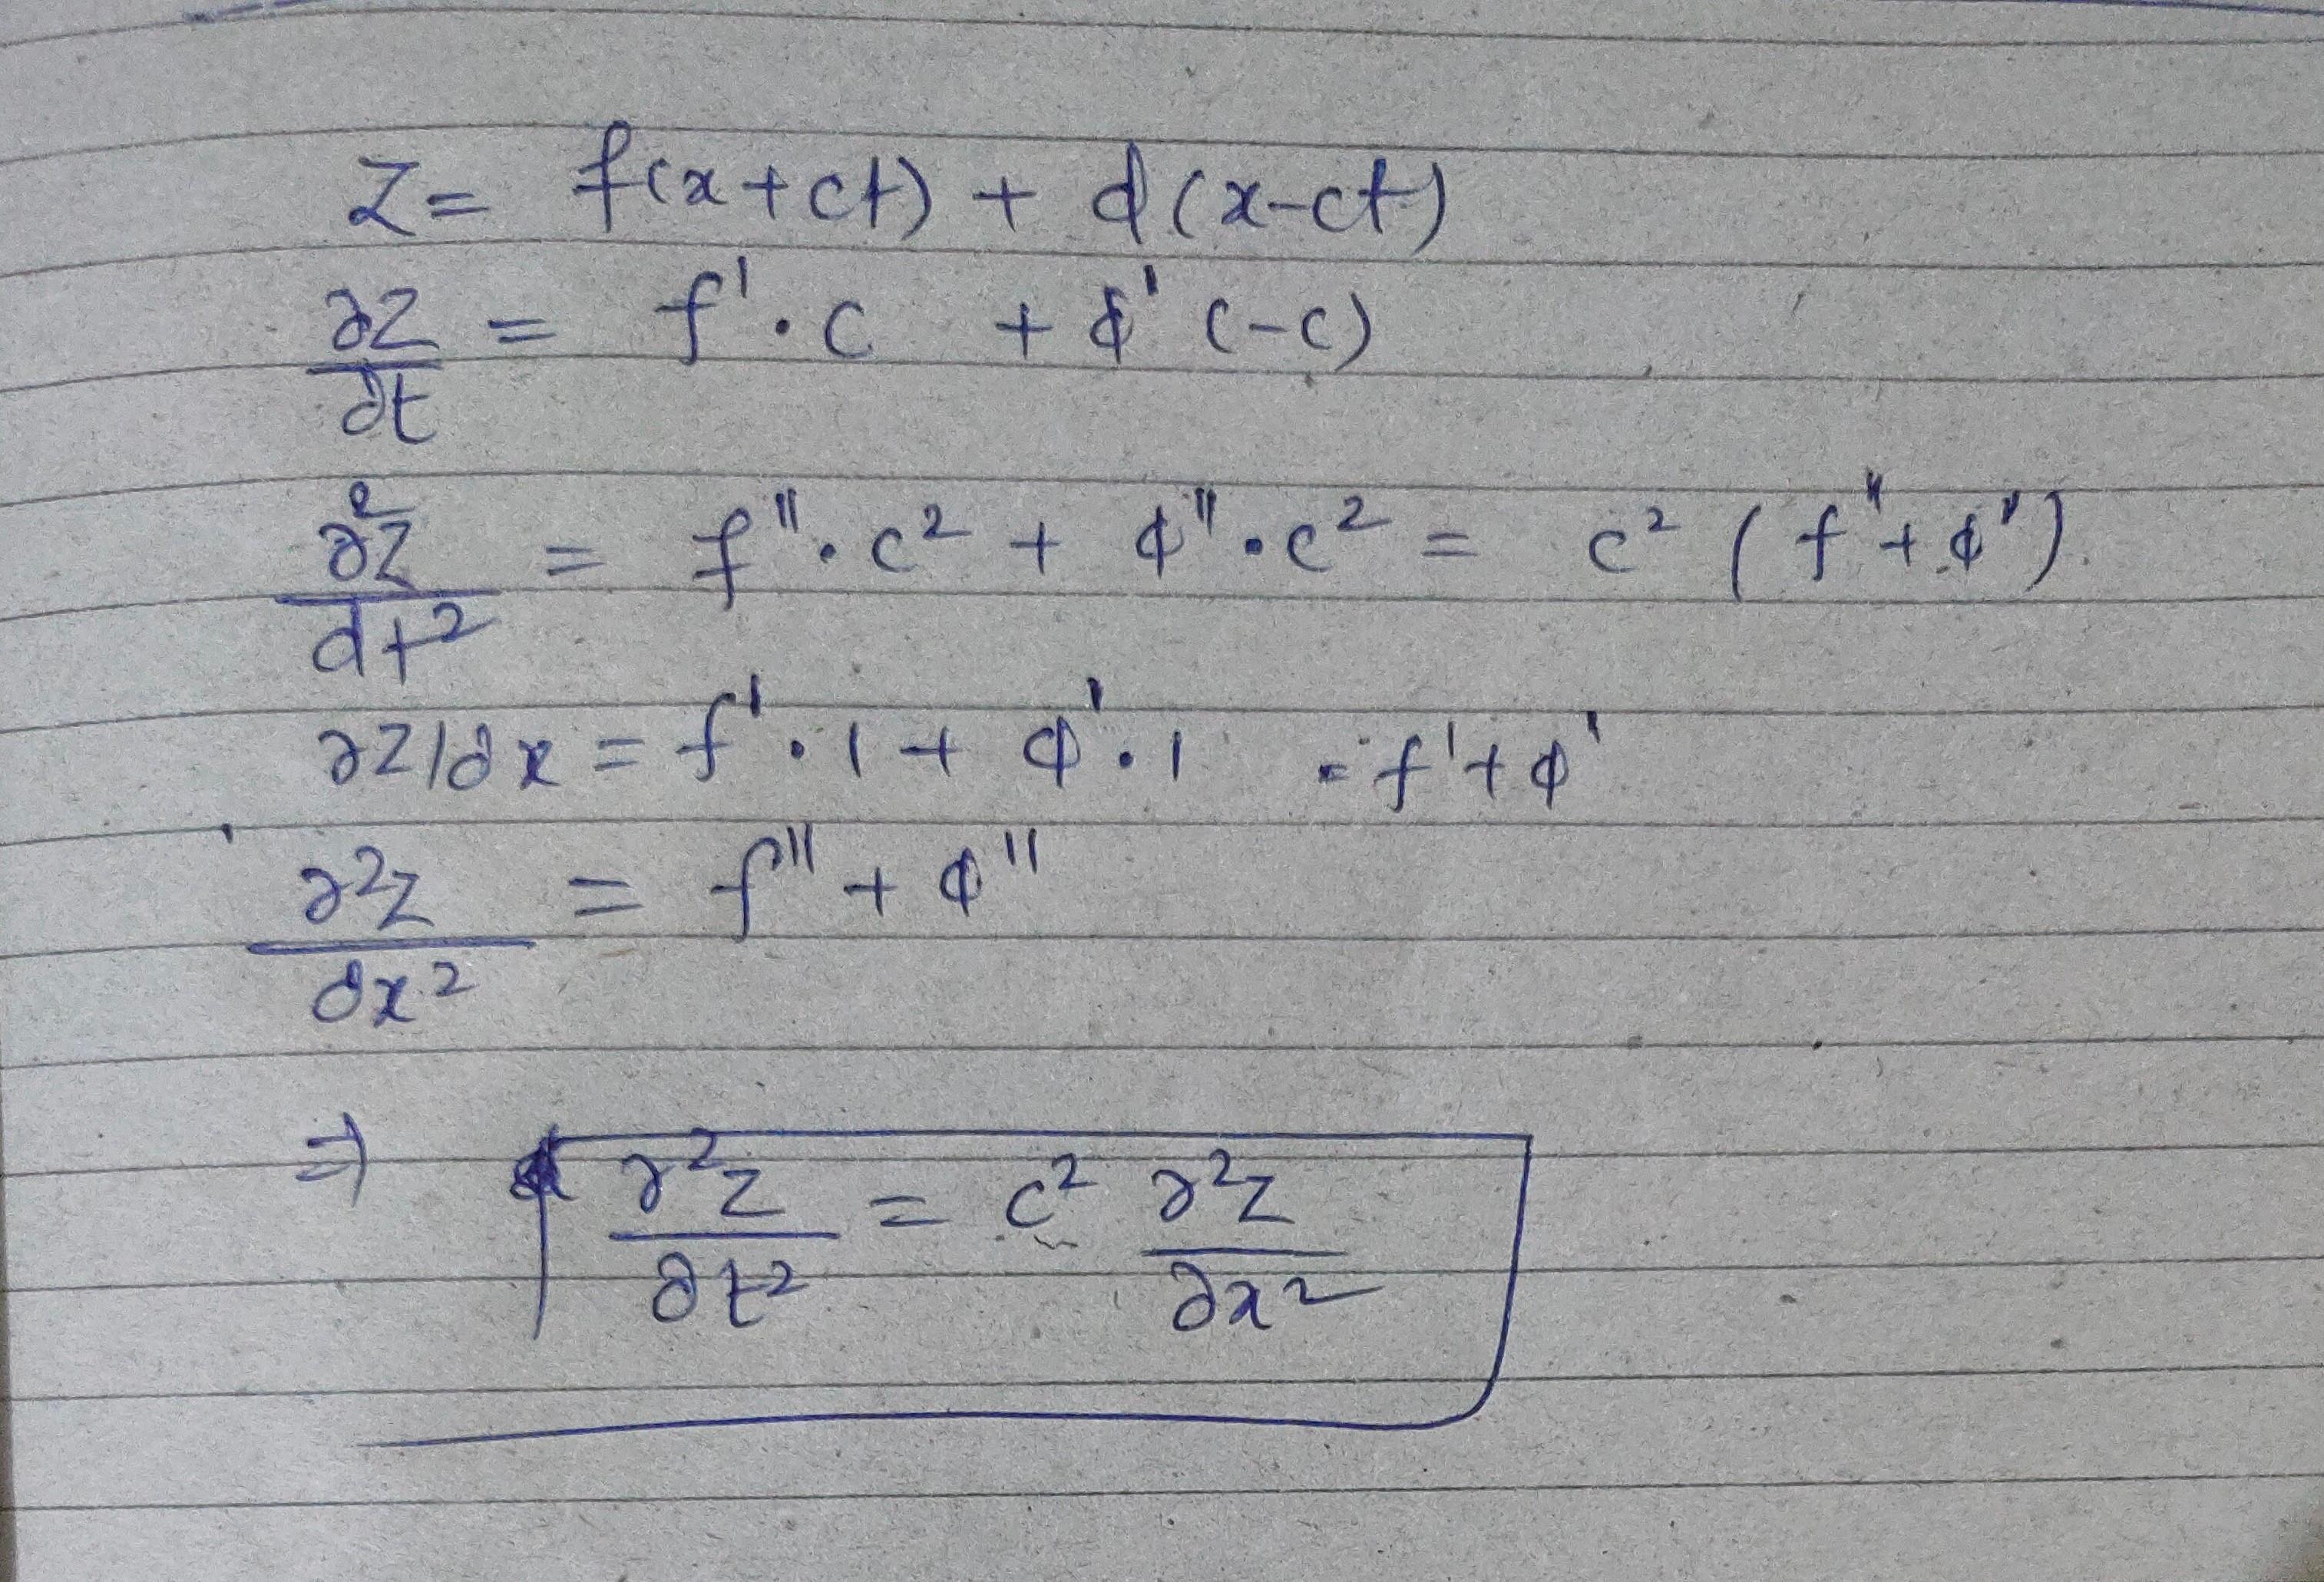 Z = f(x+ct) + ϕ(x-ct)
∂Z/∂t = f'·c + ϕ'(-c)
∂²Z/dt² = f''·c² + ϕ''·c² = c²(f''+ϕ'').
∂Z/∂x = f'·1 + ϕ'·1 = f'+ϕ'
∂²Z/∂x² = f''+ϕ''
⇒ ∂²Z/∂t² = c² ∂²Z/∂x²